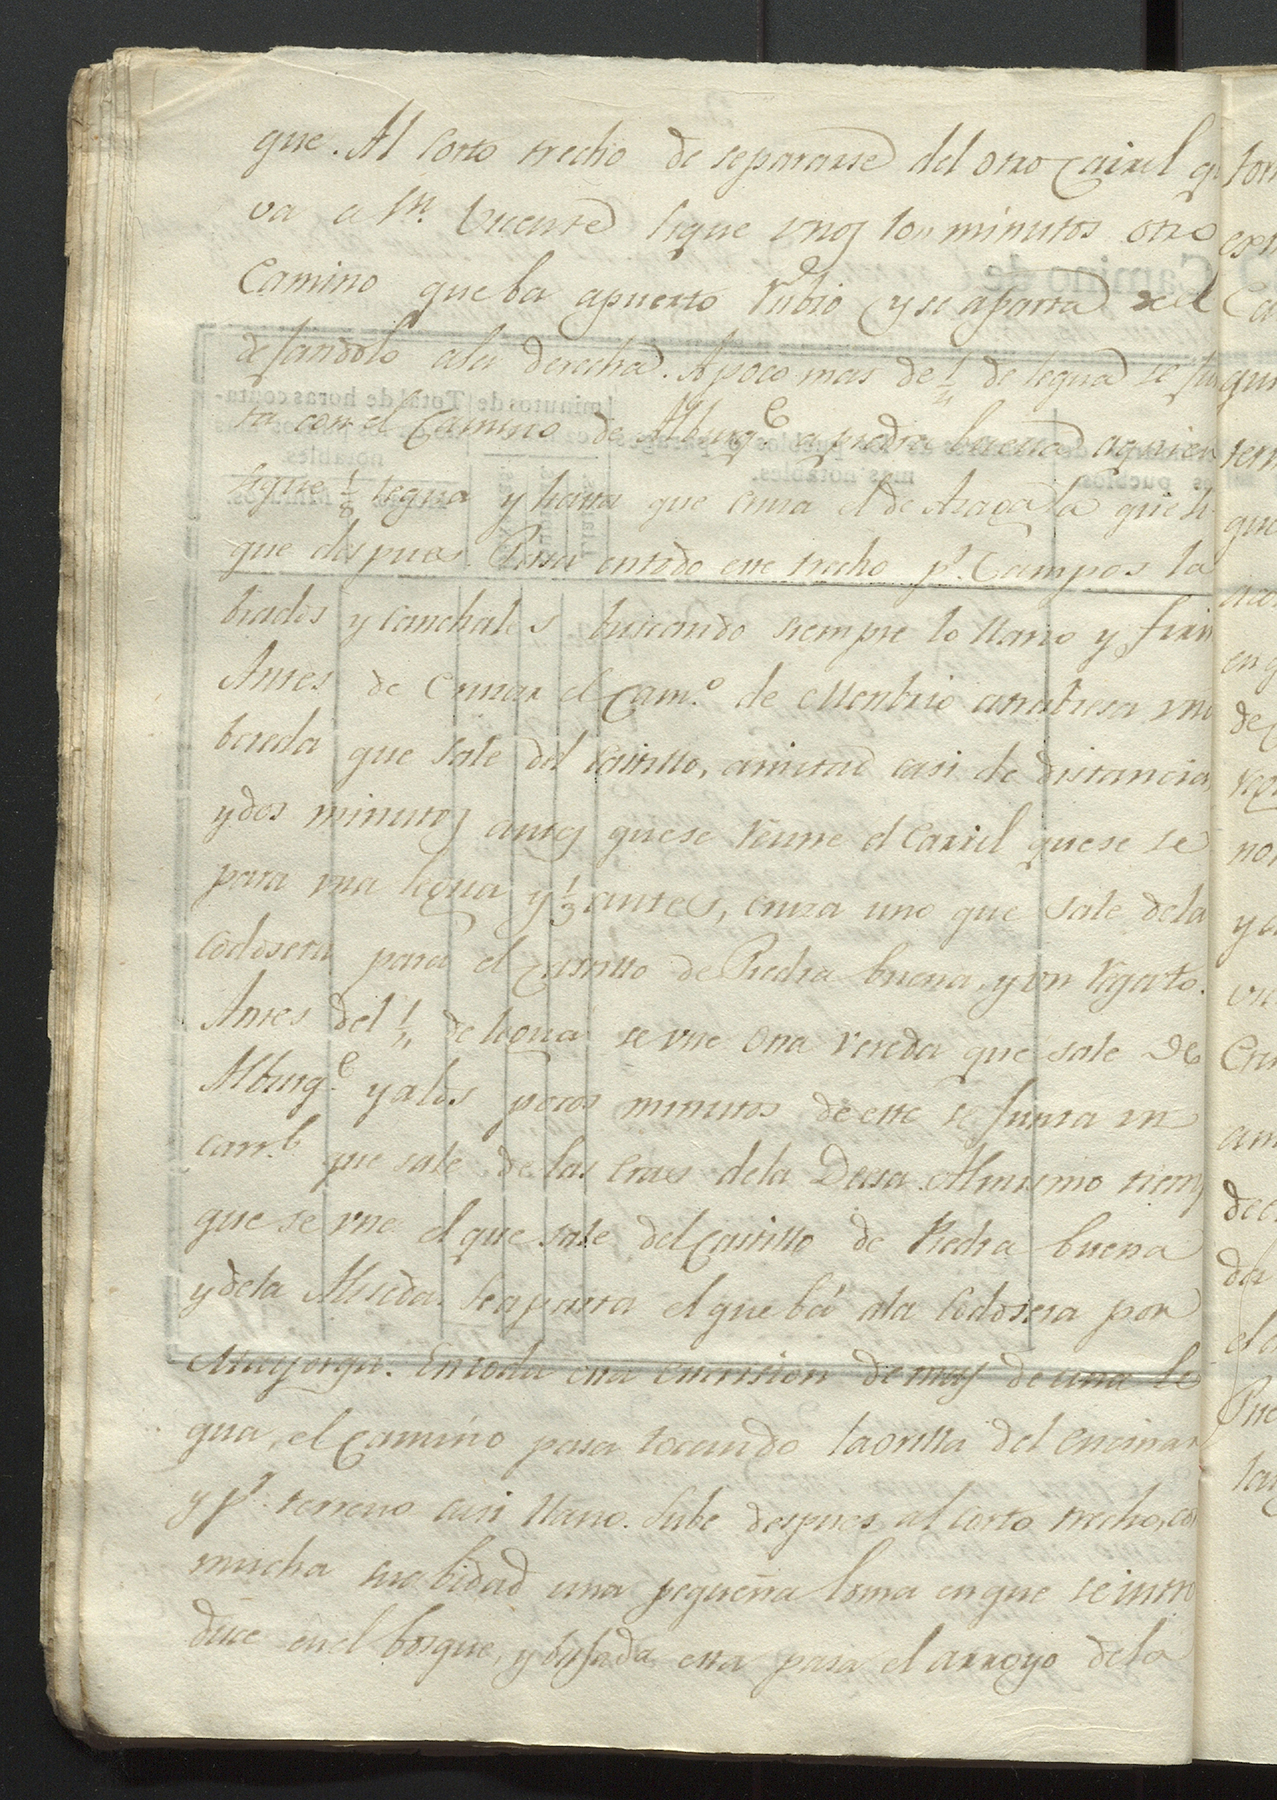 que. Al corto trecho de separarse del otro Carril q
va a Sn. Vicente sigue unos 10 minutos otro
Camino que ba apuerto Rubio y se aparta de el
dejandolo ala derecha. Apoco mas de 1/4 de legua se jun
ta con el Camino de Alburqe a piedra buena aquien
sigue 1/8 legua y hasta que cruza el de Azagala que si
gue despues. Pasa entodo este trecho pr. Campos la
brados y canchales buscando siempre lo llano y firm
Antes de cruzar el Camo. de Membrio atrabiesa una
bereda que sale del Castillo, amitad casi de distancia,
ydos minutos antes quese reune el Carril quese se
para una legua y 1/3 antes, cruza uno que sale dela
Codosera para el castillo de Piedra buena, y un regato.
Antes del 1/4 de legua se une una vereda que sale de
Alburqe yalos pocos minutos de este se junta un
carrl que sale de las Eras dela Deesa. Almismo tiemp
que se une el que sale del Castillo de Piedra buena
y dela Aliseda. Seaparta el que bá ala Codosera por
Mayorga. Entoda esta extension de mas de una le
gua, el Camino pasa tocando laorilla del encinar
y pr. terreno casi llano. Sube despues al corto trecho, con
mucha suabidad una pequeña loma enque seintro
duce en el bosque, y bajada esta pasa el arroyo dela